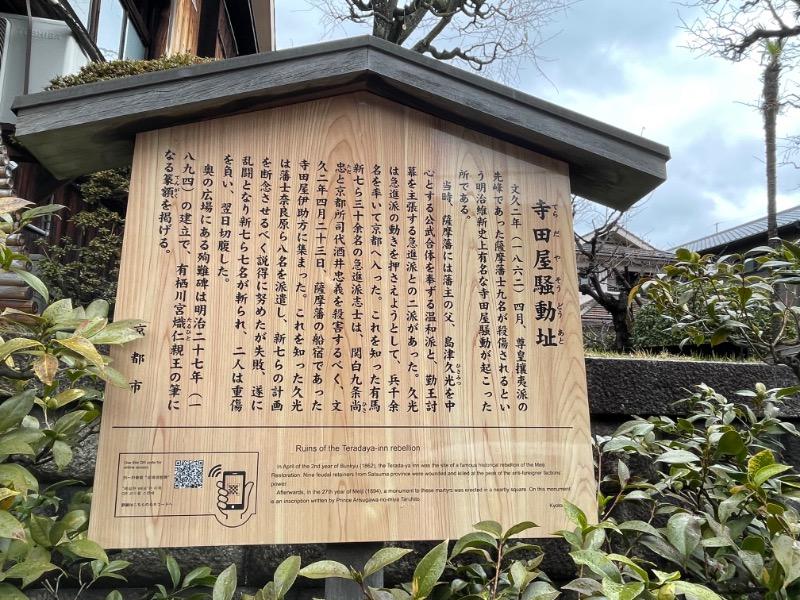 寺田屋騒動址
てらだやそうどうあと
文久二年（一八六二）四月、尊皇攘夷派の
先峰であった薩摩藩士九名が殺傷されるとい
う明治維新史上有名な寺田屋騒動が起こった
所である。
当時、薩摩藩には藩主の父、島津久光を中
ひさみつ
心とする公武合体を奉ずる温和派と、勤王討
幕を主張する急進派との二派があった。久光
は急進派の動きを押さえようとして、兵千余
名を率いて京都へ入った。これを知った有馬
新七ら三十余名の急進派志士は、関白九条尚
ひさ
忠と京都所司代酒井忠義を殺害するべく、文
ただ
久二年四月二十三日、薩摩藩の船宿であった
寺田屋伊助方に集まった。これを知った久光
は藩士奈良原ら八名を派遣し、新七らの計画
を断念させるべく説得に努めたが失敗、遂に
乱闘となり新七ら七名が斬られ、二人は重傷
を負い、翌日切腹した。
奥の広場にある殉難碑は明治二十七年（一
八九四）の建立で、有栖川宮熾仁親王の筆に
たるひと
なる篆額を掲げる。
てんがく
京都市
Ruins of the Teradaya-inn rebellion
In April of the 2nd year of Bunkyu (1862), the Terada-ya inn was the site of a famous historical rebellion of the Meiji
Restoration. Nine feudal retainers from Satsuma province were wounded and killed at the peak of the anti-foreigner factions'
power.
Afterwards, in the 27th year of Meiji (1894), a monument to these martyrs was erected in a nearby square. On this monument
is an inscription written by Prince Arisugawa-no-miya Taruhito.
Kyoto
TOSHIBA